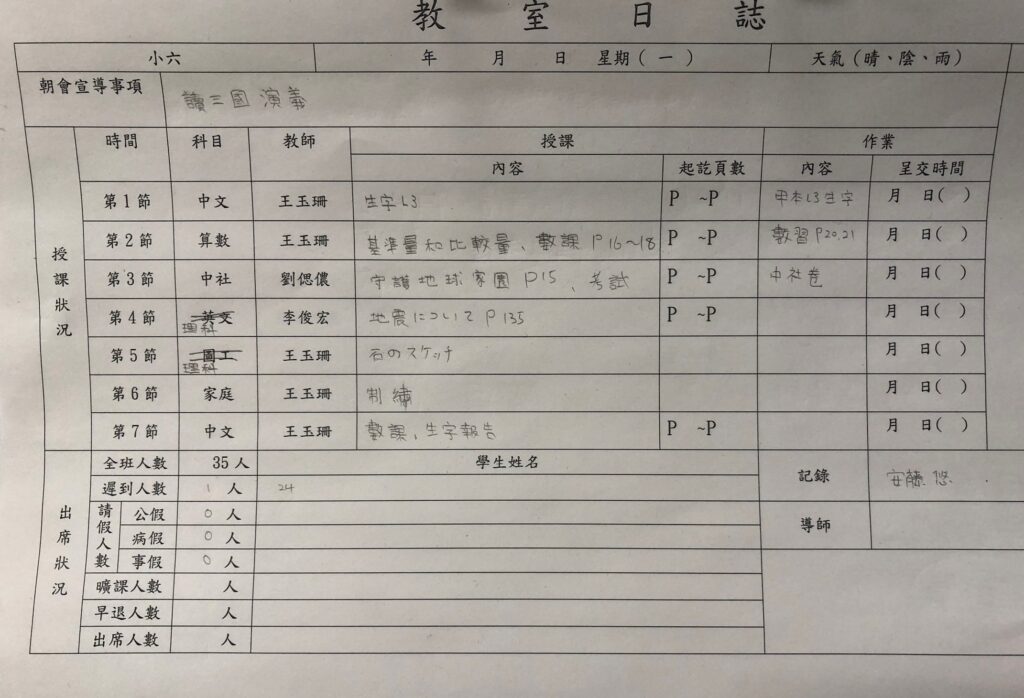 教室日誌
小六 年 月 日 星期(一) 天氣(晴、陰、雨)
朝會宣導事項 讀三國演義
授課狀況 時間 科目 教師 授課 作業
內容 起訖頁數 內容 呈交時間
第1節 中文 王玉珊 生字L3 P ~P 甲本L3生字 月 日( )
第2節 算數 王玉珊 基準量和比較量、數課 P16~18 P ~P 數習P20.21 月 日( )
第3節 中社 劉偲儂 守護地球家園 P15、考試 P ~P 中社卷 月 日( )
第4節 英文 理科 李俊宏 地震について P135 P ~P 月 日( )
第5節 圖工 理科 王玉珊 石のスケッチ 月 日( )
第6節 家庭 王玉珊 刺繡 月 日( )
第7節 中文 王玉珊 數課、生字報告 P ~P 月 日( )
出席狀況 全班人數 35人 學生姓名
遲到人數 1人 24
記錄 安藤 悠
請假人數 公假 0人
導師
病假 0人
事假 0人
曠課人數 人
早退人數 人
出席人數 人